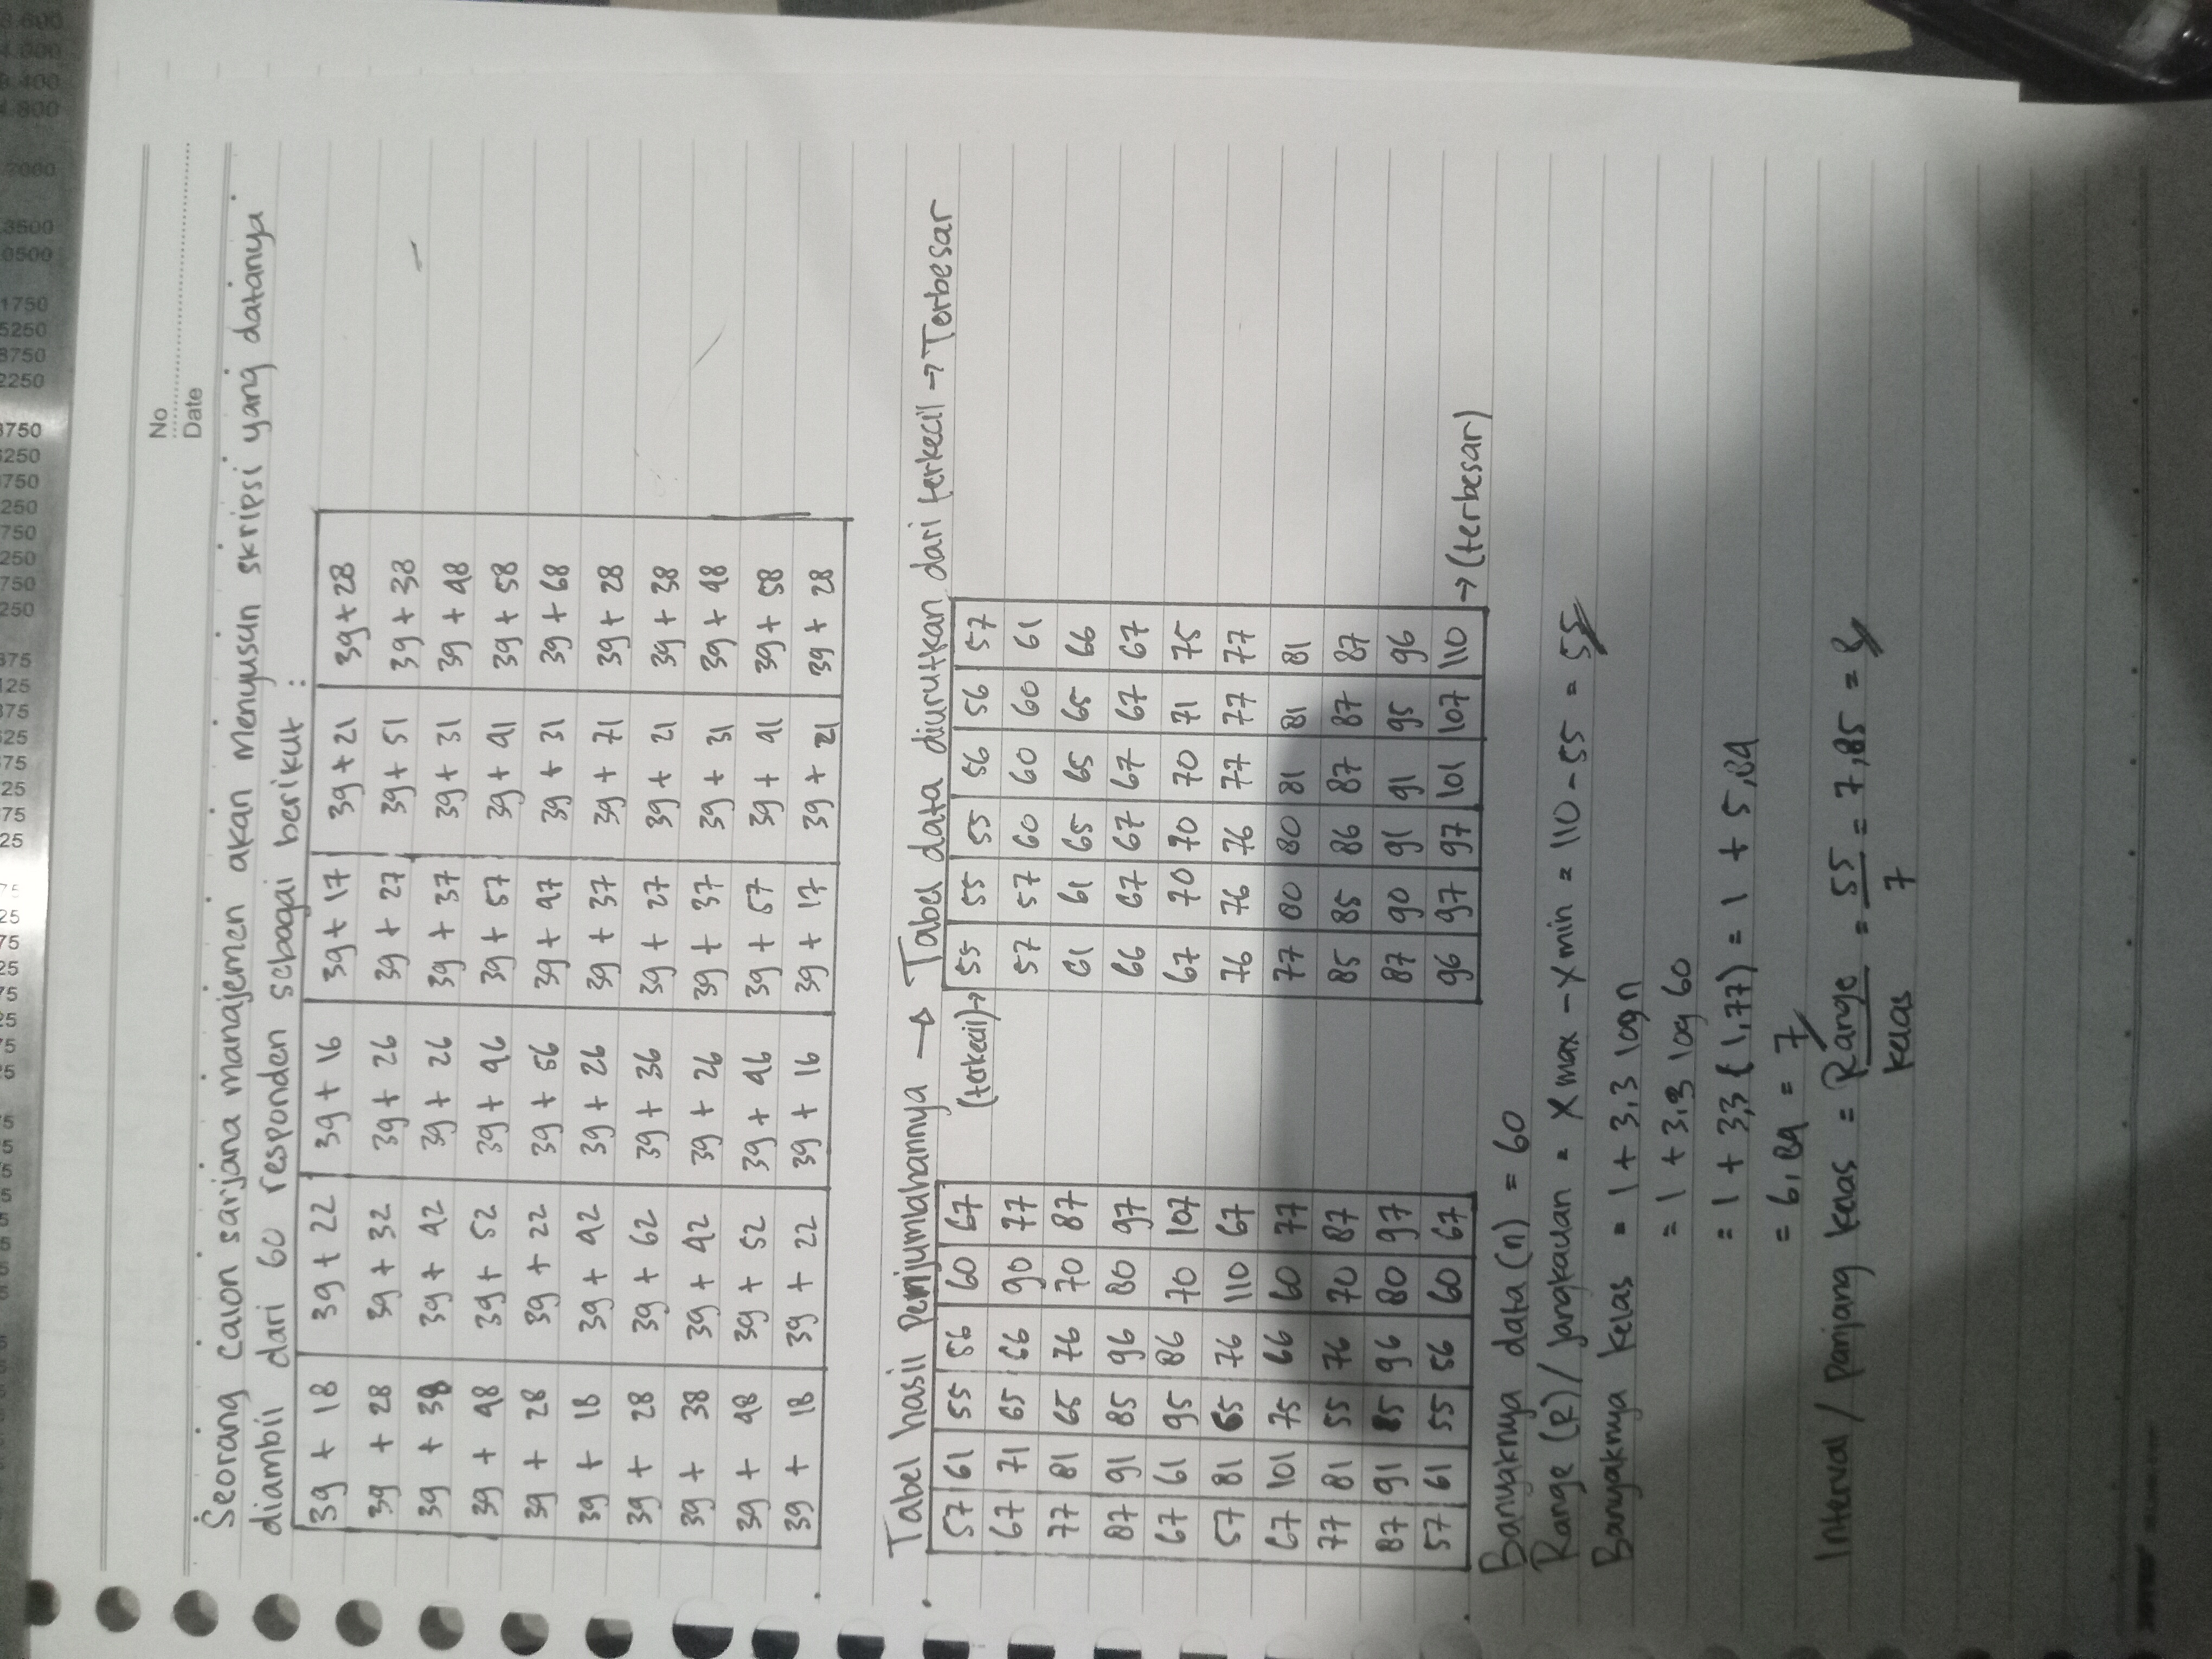 No
Date
Seorang calon sarjana manajemen akan menyusun skripsi yang datanya
diambil dari 60 responden sebagai berikut :
39 + 18 39 + 22 39 + 16 39 + 17 39 + 21 39 + 28
39 + 28 39 + 32 39 + 26 39 + 27 39 + 51 39 + 38
39 + 38 39 + 42 39 + 26 39 + 37 39 + 31 39 + 48
39 + 48 39 + 52 39 + 46 39 + 57 39 + 41 39 + 58
39 + 28 39 + 22 39 + 56 39 + 47 39 + 31 39 + 68
39 + 18 39 + 42 39 + 26 39 + 37 39 + 71 39 + 28
39 + 28 39 + 62 39 + 36 39 + 27 39 + 21 39 + 38
39 + 38 39 + 42 39 + 26 39 + 37 39 + 31 39 + 48
39 + 48 39 + 52 39 + 46 39 + 57 39 + 41 39 + 58
39 + 18 39 + 22 39 + 16 39 + 17 39 + 21 39 + 28
Tabel hasil Penjumlahannya → Tabel data diurutkan dari terkecil → Terbesar
57 61 55 56 60 67 (terkecil)→ 55 55 55 56 56 57
67 71 65 66 90 77 57 57 60 60 60 61
77 81 65 76 70 87 61 61 65 65 65 66
87 91 85 96 80 97 66 67 67 67 67 67
67 61 95 86 70 107 67 70 70 70 71 75
57 81 65 76 110 67 76 76 76 77 77 77
67 101 75 66 60 77 77 80 80 81 81 81
77 81 55 76 70 87 85 85 86 87 87 87
87 91 85 96 80 97 87 90 91 91 95 96
57 61 55 56 60 67 96 97 97 101 107 110 → (terbesar)
Banyaknya data (n) = 60
Range (R) / jangkauan = X max - X min = 110 - 55 = 55
Banyaknya kelas = 1 + 3,3 log n
= 1 + 3,3 log 60
= 1 + 3,3 (1,77) = 1 + 5,84
= 6,84 = 7
Interval / Panjang kelas = Range = 55 = 7,85 = 8
kelas 7